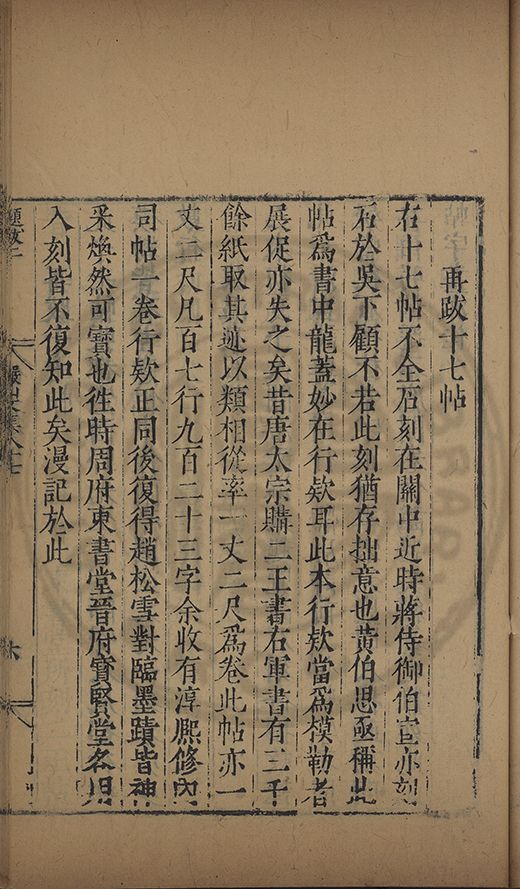 再跋十七帖
右十七帖不全石刻在關中近時蔣侍御伯宣亦刻
石於吳下顧不若此刻猶存拙意也黃伯思亟稱此
帖爲書中龍蓋妙在行欵耳此本行欵當爲模勒者
展促亦失之矣昔唐太宗購二王書右軍書有三千
餘紙取其迹以類相從率一丈二尺爲卷此帖亦一
丈二尺凡百七行九百二十三字余收有淳熈修內
司帖一卷行欵正同後復得趙松雪對臨墨蹟皆神
采煥然可寶也徃時周府東書堂晉府寶賢堂各
入刻皆不復知此矣漫記於此